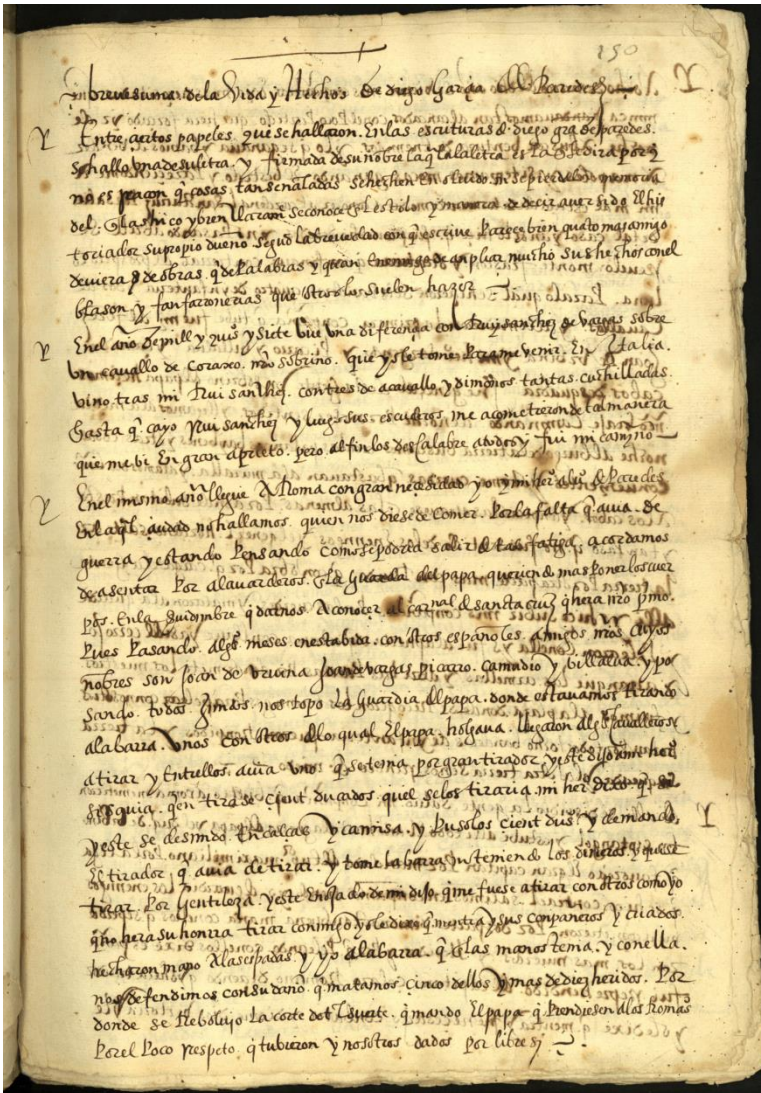 150
En breve suma de la Vida y Hechos de diego Garçia de Paredes
Entre çiertos papeles que se hallaron en las escrituras de diego gra de paredes
se hallo una de su letra y firmada de su nobre la ql a la letra es la q se dira por q
no es raçon q cosas tan señaladas se hechen en olvido
del seconoçe el estilo y manera de decir aver sido El his
toriador su propio dueño segud la brevedad con q escrive Pareçe bien quato mas amigo
deviera de obras q de Palabras y quan Enemigo de anpliar mucho sus hechos con el
blason y fanfarronerias que otros los suelen hazer
En el año de mill y quis y siete uve una diferençia con Ruy sanchez de vargas sobre
un cavallo de coraxo mro sobrino que yo le tome Para me venir En Italia
vino tras mi Rui sanchez con tres de acavallo y dimonos tantas cuchilladas
hasta q cayo Rui sanchez y luego sus escuderos me acometieron de tal manera
que me bi En gran aprieto pero al fin los desCalabre a todos y fui mi camino
En el mismo año llegue A Roma con gran neçesidad yo y mi hero alvo de Paredes
En la ql çiudad no hallamos quien nos diese de comer Por la falta q avia de
guerra y estando Pensando como se podria salir de tata fatiga acordamos
de asentar Por alavarderos de la Guarda del papa queriendo mas poner los cuer
pos En la q datnos A conoçer al carnal de sancta cruz q hera nro pmo
Pues Pasando algos meses en esta bida con otros españoles amigos mros cuyos
nobres son Joan de urvina Joan de vargas piçarro Çamudio y villalva y po
sando todos Juntos nos topo la Guardia del papa donde estavamos tirando
a la barra unos con otros de lo qual El papa holgava llegaron algos Cavalleros
a tirar y Entre llos avia uno q se tenia por gran tirador y este dixo a mi hero
se queria qen tirase Çient ducados quel se los tiraria mi hero dixo q
y este se desnudo En calças y camisa y Puso los cient dus y demando
El tirador q avia de tirar y tome la barra no teniendo los dineros y quise
tirar Por Gentileza y este Enojado de mi dixo q me fuese a tirar con otros como yo
q no hera su honrra tirar conmigo yo le dixe q mentia y sus conpaneros y criados
hecharon mano A las espadas y yo a la barra q En las manos tenia y con ella
nos defendimos con su daño q matamos Çinco dellos y mas de diez heridos Por
donde se Rebolvio La corte de tal suerte q mando El papa q Prendiesen a los Romas
Por el Poco rrespeto q tubieron y nosotros dados por libres